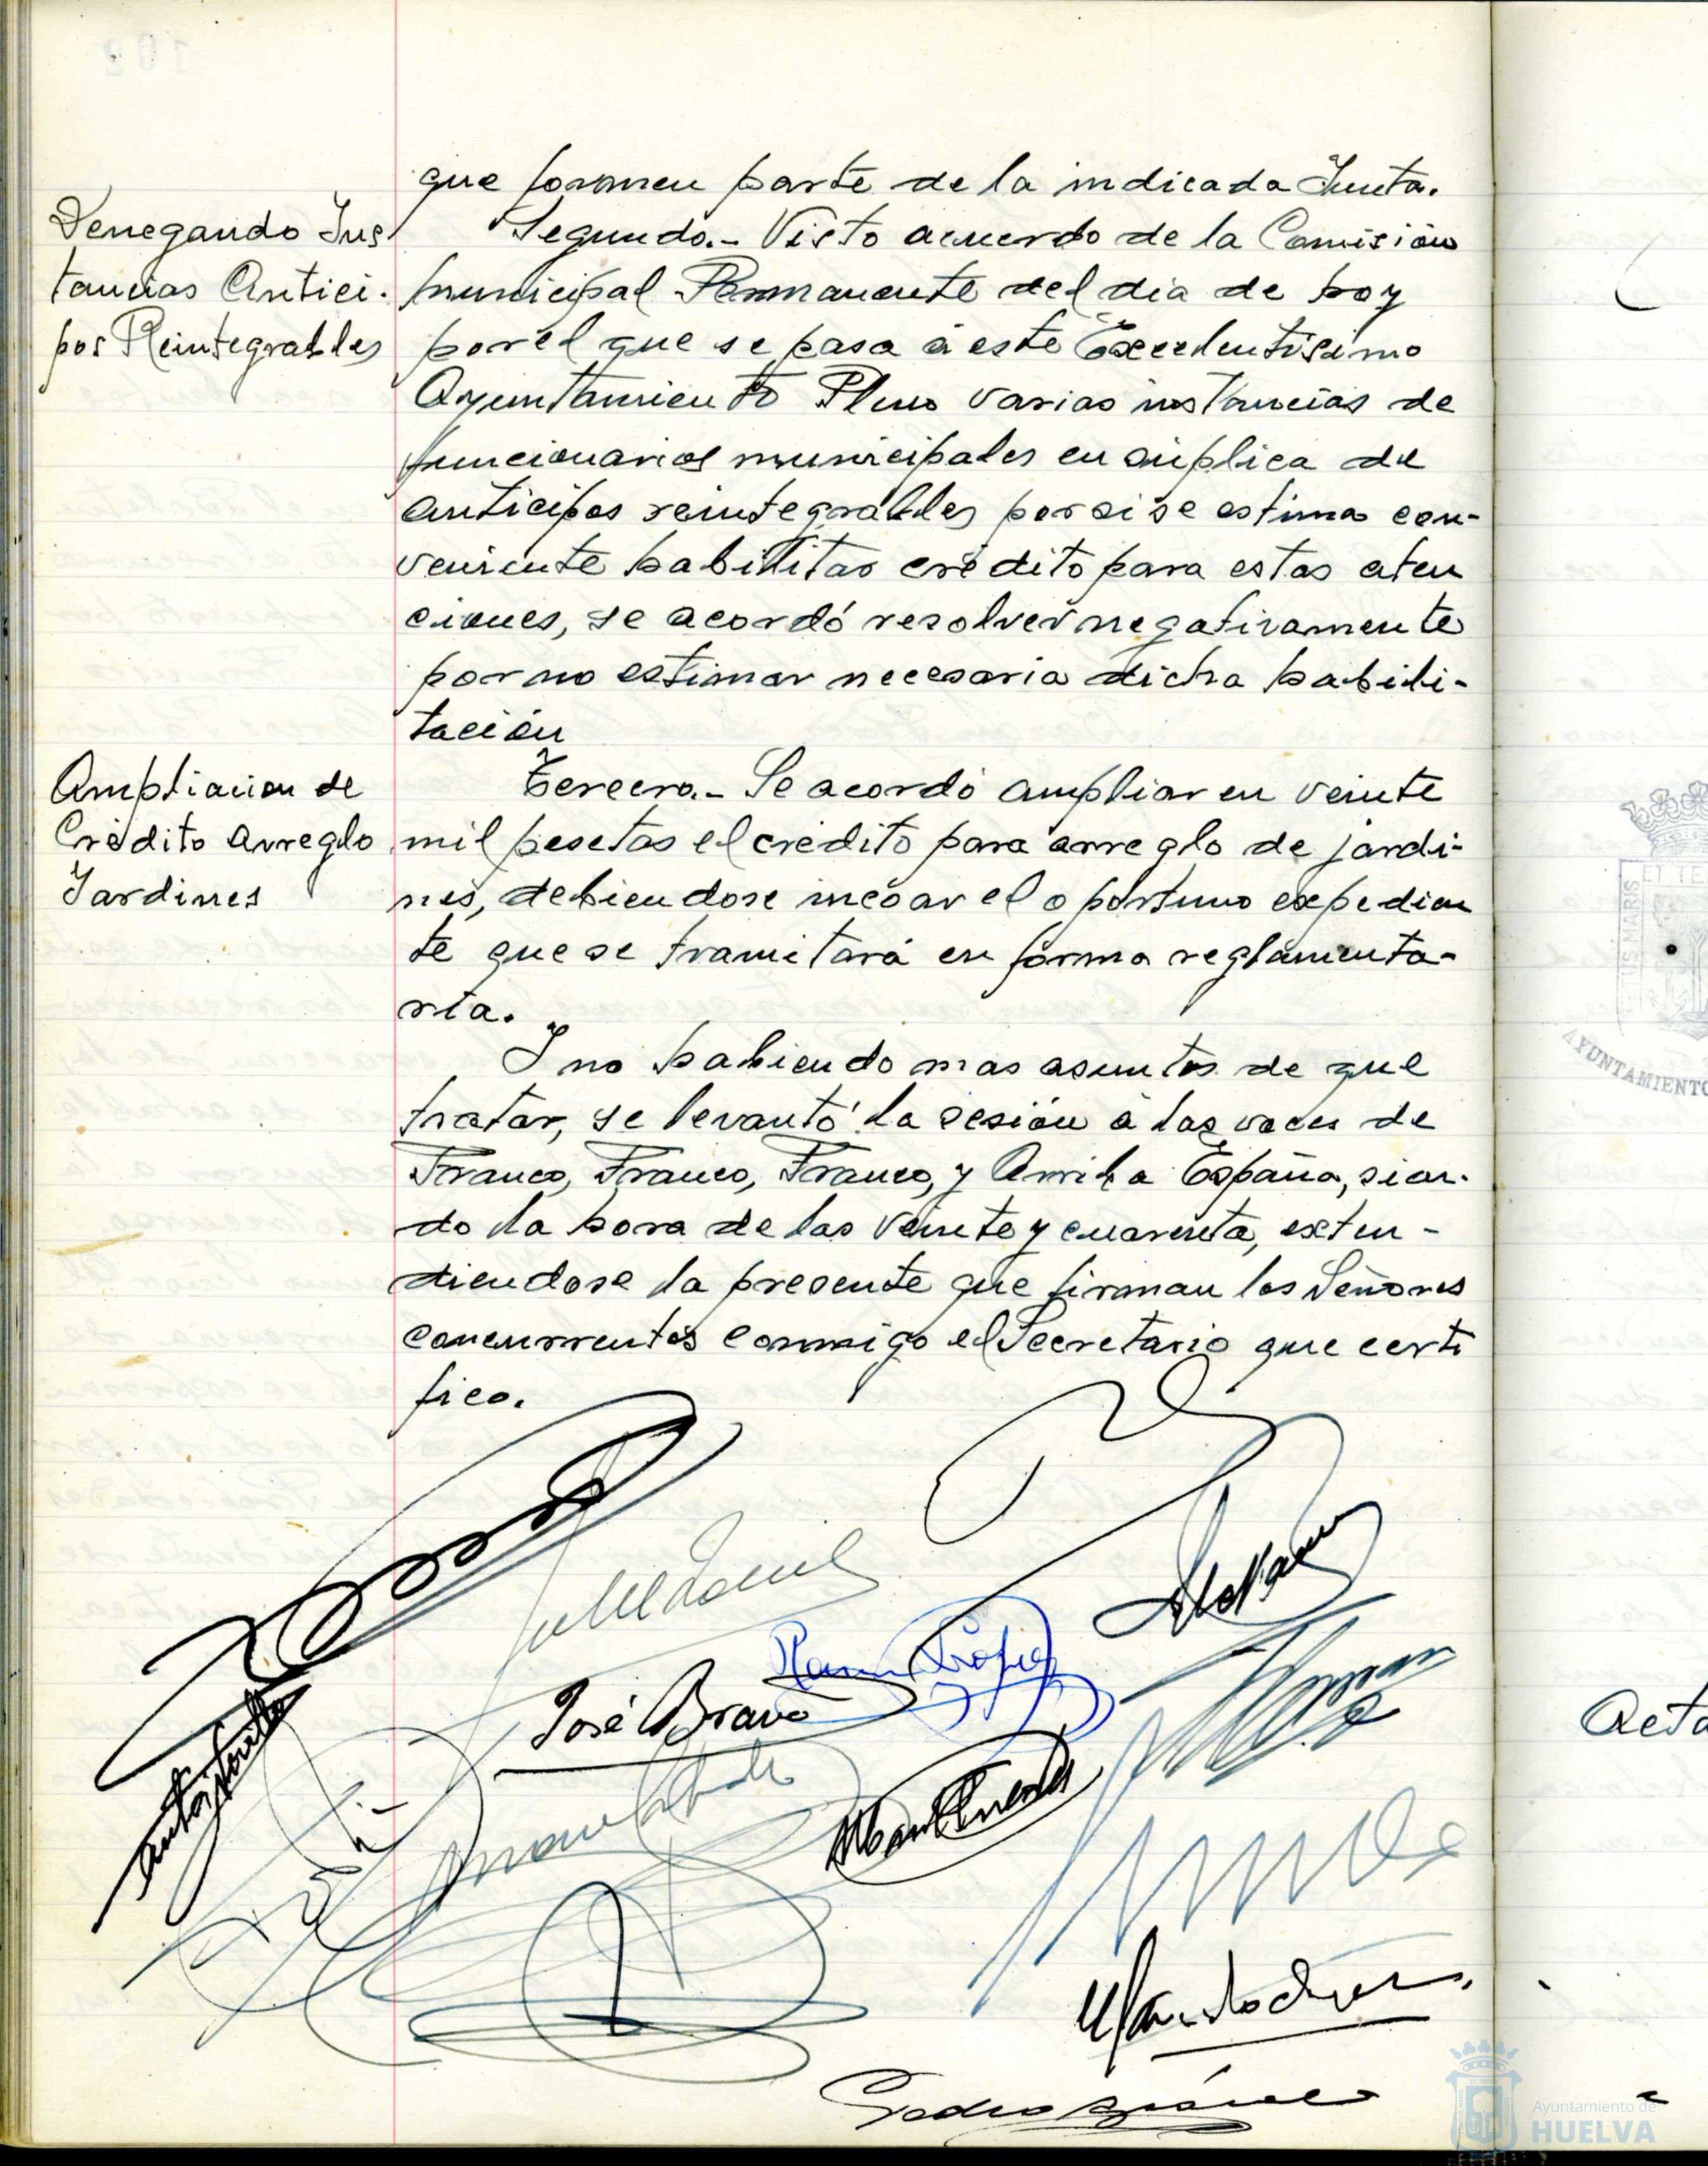 que formen parte de la indicada Junta.
Denegando Ins
tancias Antici-
pos Reintegrables
Segundo.- Visto acuerdo de la Comisión
municipal Permanente del dia de hoy
por el que se pasa á este Excelentísimo
Ayuntamiento Pleno varias instancias de
funcionarios municipales en súplica de
anticipos reintegrables por si se estima con-
veniente habilitar crédito para estas aten
ciones, se acordó resolver negativamente
por no estimar necesaria dicha habili-
tación
Ampliacion de
Crédito arreglo
Jardines
Tercero.- Se acordó ampliar en veinte
mil pesetas el crédito para arreglo de jardi-
nes, debiendose incoar el oportuno expedien
te que se tramitará en forma reglamenta-
ria.
Y no habiendo mas asuntos de que
tratar, se levantó la sesión á las voces de
Franco, Franco, Franco, y Arriba España, sien-
do la hora de las veinte y cuarenta, exten-
diendose la presente que firman los Señores
concurrentes conmigo el Secretario que certi
fico.
José Bravo
Pedro
AYUNTAMIENTO
Acta
Ayuntamiento de
HUELVA